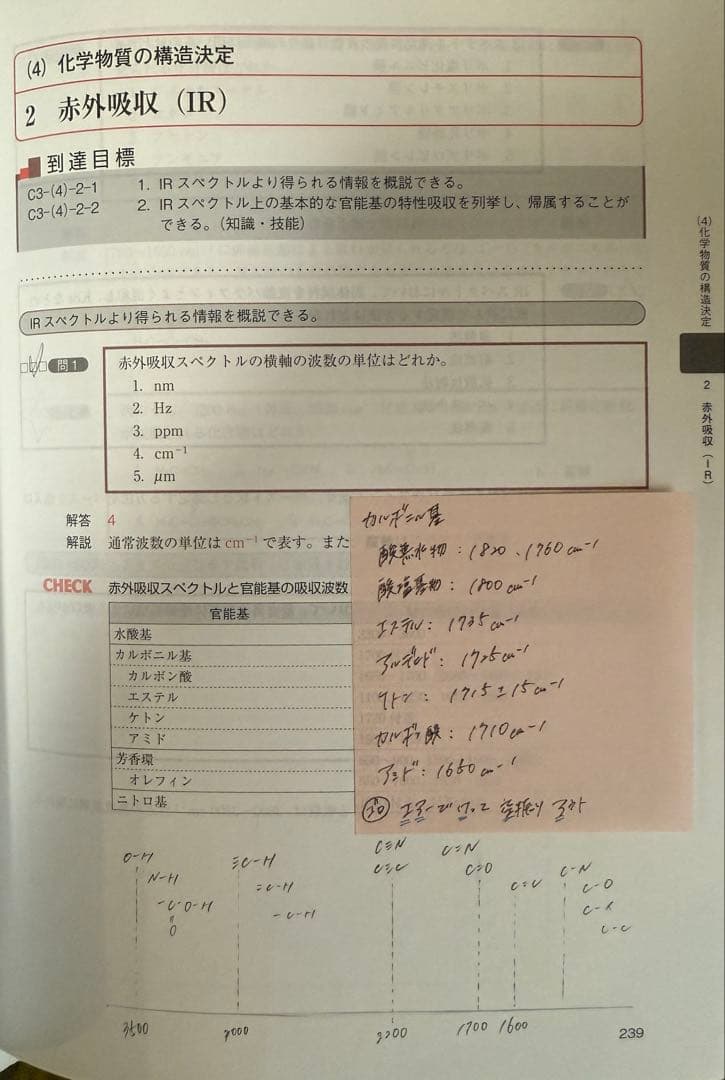 (4) 化学物質の構造決定
2 赤外吸収(IR)
到達目標
C3-(4)-2-1 1. IR スペクトルより得られる情報を概説できる。
C3-(4)-2-2 2. IR スペクトル上の基本的な官能基の特性吸収を列挙し、帰属することが
できる。(知識・技能)
IR スペクトルより得られる情報を概説できる。
問1
赤外吸収スペクトルの横軸の波数の単位はどれか。
1. nm
2. Hz
3. ppm
4. cm⁻¹
5. μm
解答 4
解説 通常波数の単位は cm⁻¹ で表す。また
CHECK 赤外吸収スペクトルと官能基の吸収波数
官能基
水酸基
カルボニル基
カルボン酸
エステル
ケトン
アミド
芳香環
オレフィン
ニトロ基
カルボニル基
酸無水物:1820、1760cm⁻¹
酸塩基物:1800cm⁻¹
エステル:1735cm⁻¹
アルデヒド:1725cm⁻¹
ケトン:1715±15cm⁻¹
カルボン酸:1710cm⁻¹
アミド:1650cm⁻¹
ゴロ エアーでけって空振り アウト
O-H ≡C-H C≡N C=N
N-H =C-H C≡C C=O C=C C-N
-C-O-H -C-H C-O
O C-X
C-C
3500 3000 2200 1700 1600
239
(4)化学物質の構造決定
2 赤外吸収(IR)